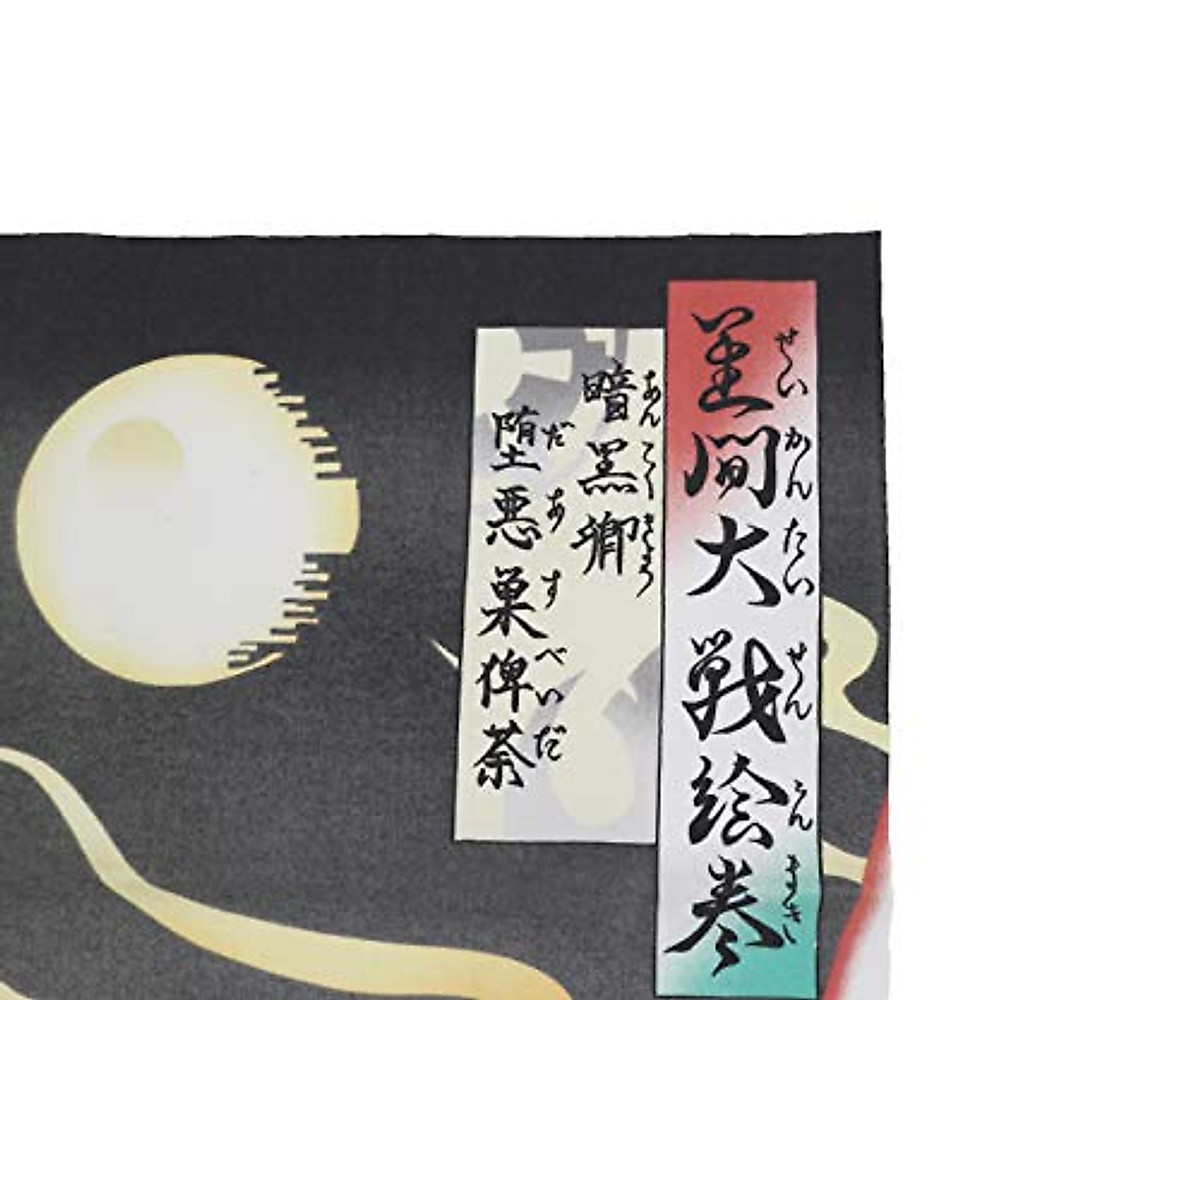 星間大戦絵巻
せいかんたいせんえまき
暗黒卿
あんこくきょう
堕悪巣俾荼
だあすべいだ